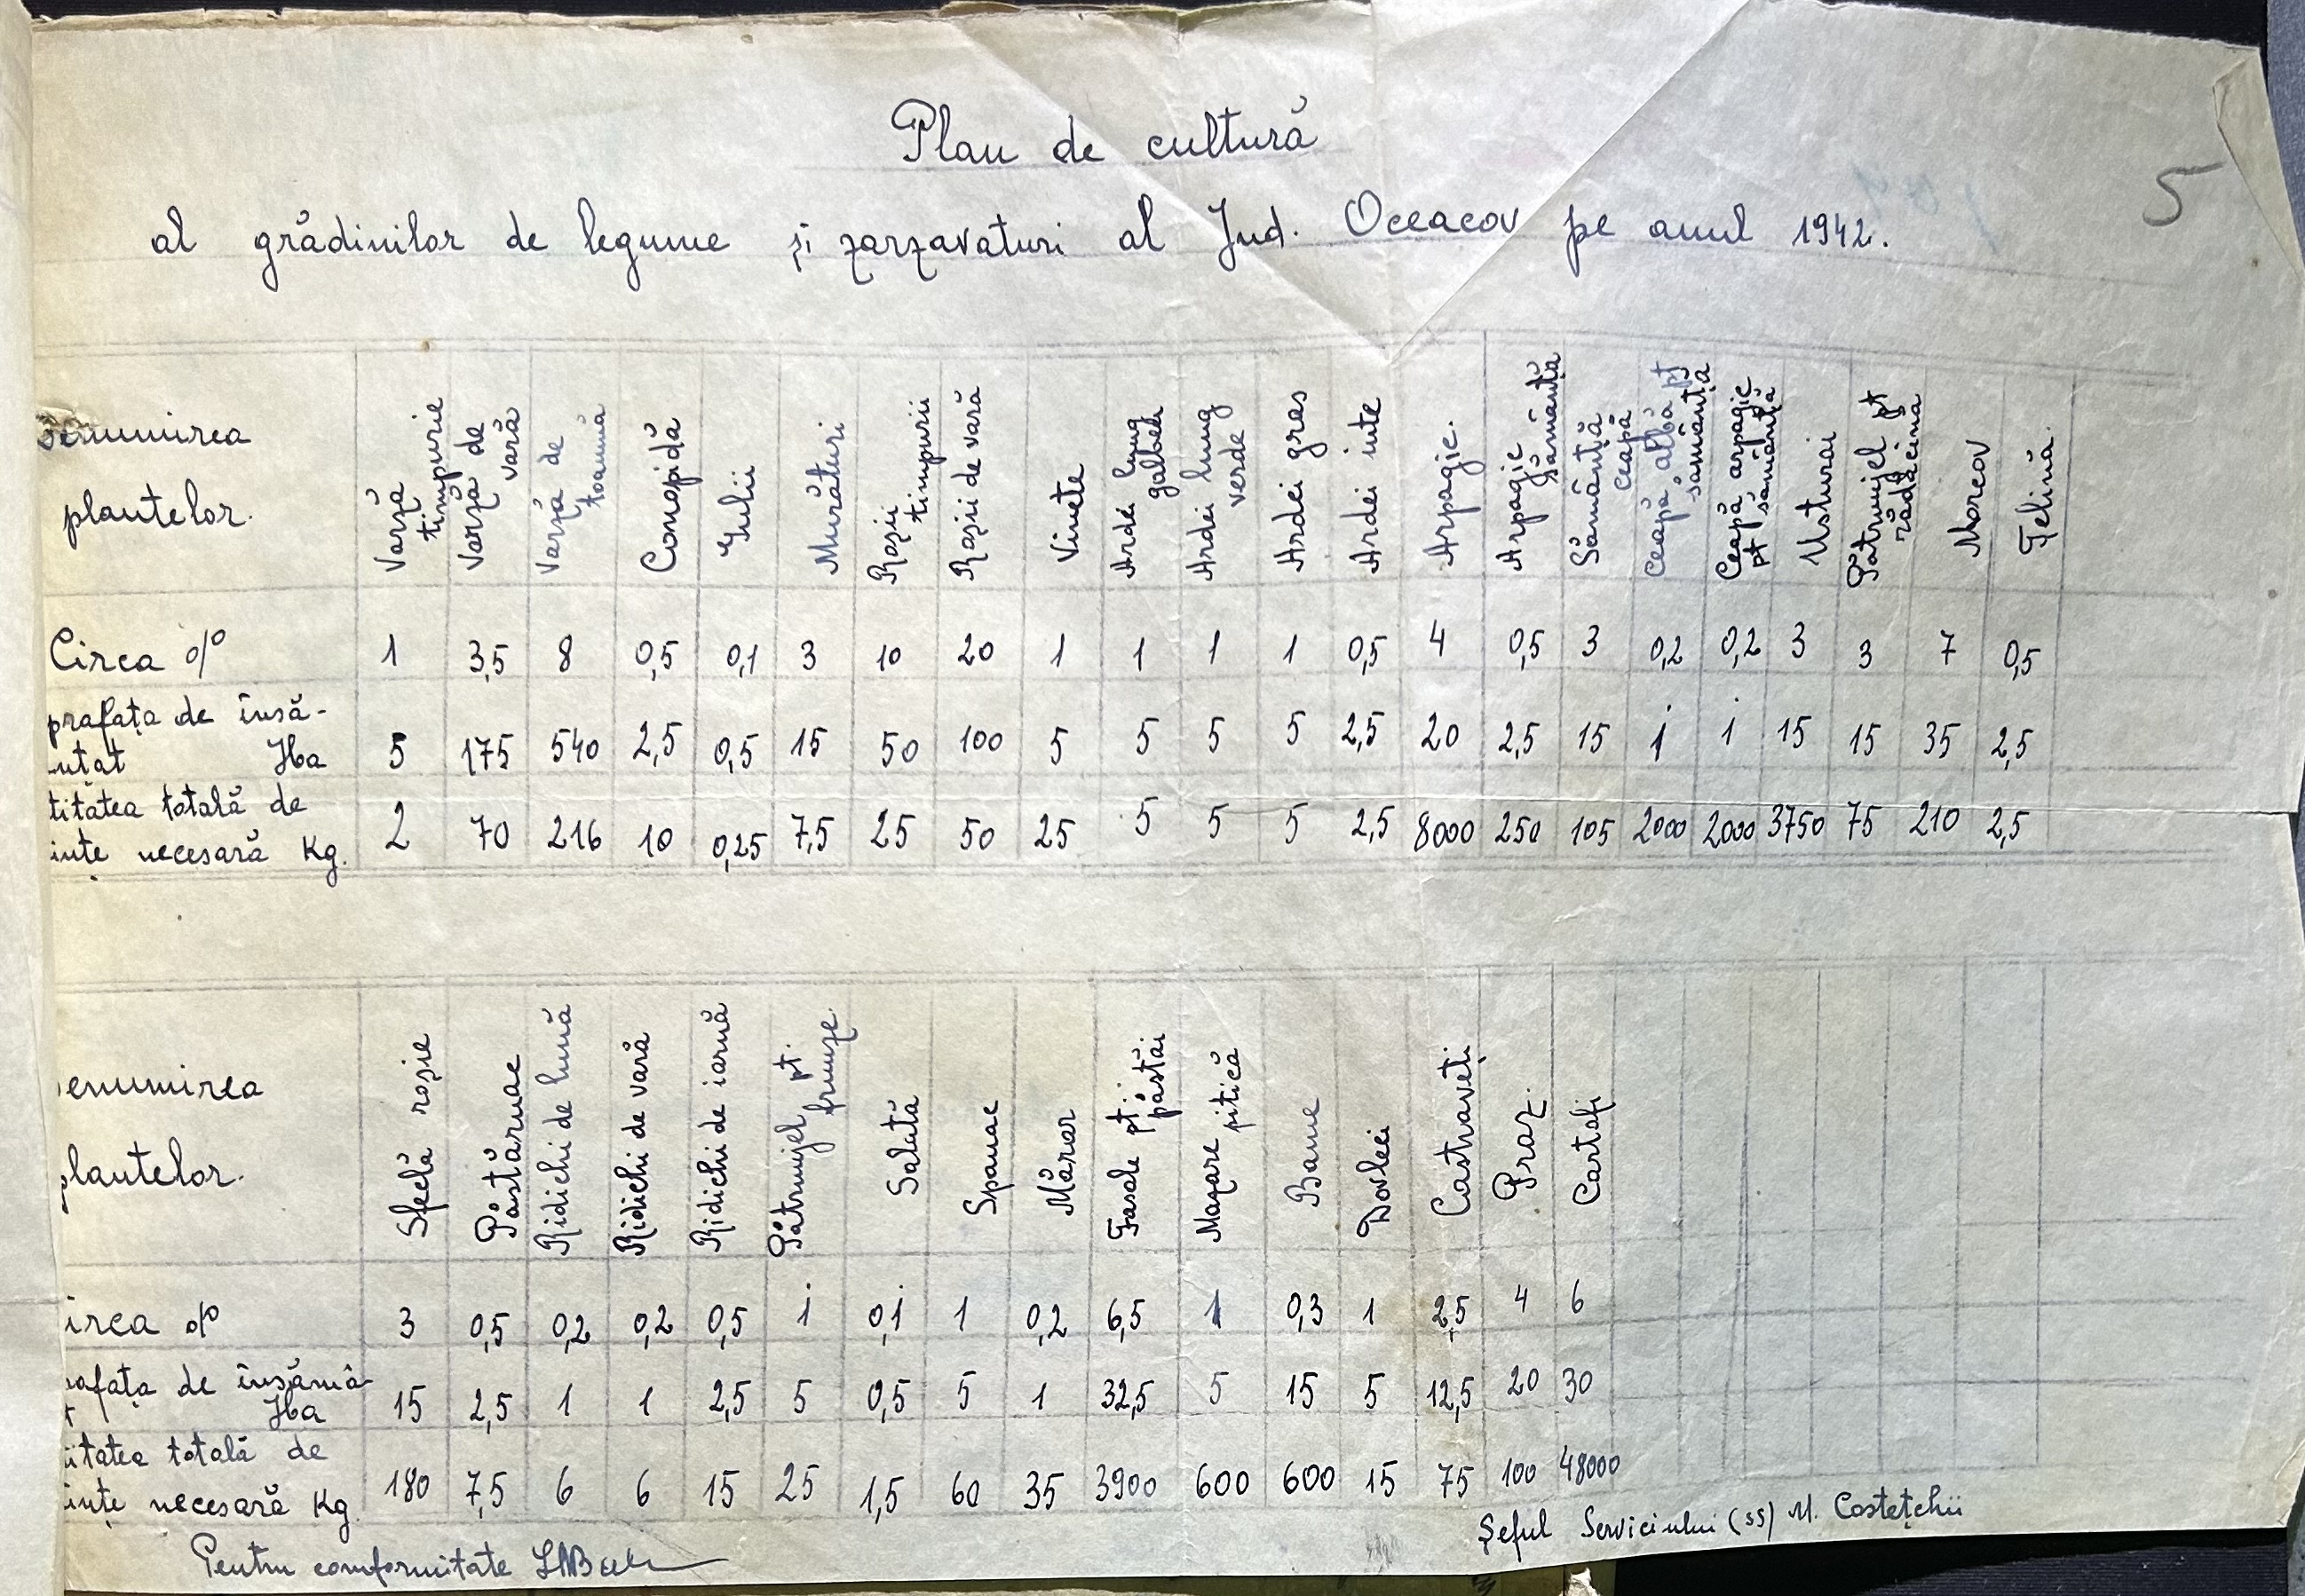 Plan de cultură
5
al grădinilor de legume și zarzavaturi al Jud. Oceacov pe anul 1942.
Denumirea plantelor. Varză timpurie Varză de vară Varză de toamnă Conopidă Gulii Murături Roșii timpurii Roșii de vară Vinete Ardei lung galben Ardei lung verde Ardei gras Ardei iute Arpagic. Arpagic sămânță Sămânță ceapă Ceapă albă pt sămânță Ceapă arpagic pt sămânță Usturoi Pătrunjel pt rădăcină Morcov Țelină.
Circa % 1 3,5 8 0,5 0,1 3 10 20 1 1 1 1 0,5 4 0,5 3 0,2 0,2 3 3 7 0,5
prafața de însă-
uțat Ha 5 175 540 2,5 0,5 15 50 100 5 5 5 5 2,5 20 2,5 15 1 1 15 15 35 2,5
titatea totală de
ințe necesară Kg. 2 70 216 10 0,25 7,5 25 50 25 5 5 5 2,5 8000 250 105 2000 2000 3750 75 210 2,5
enumirea plantelor. Sfeclă roșie Păstârnac Ridichi de lună Ridichi de vară Ridichi de iarnă Pătrunjel pt. frunze. Salată Spanac Mărar Fasole pt. păstăi Mazăre pitică Bame Dovlei Castraveți Praz. Cartofi
irca % 3 0,5 0,2 0,2 0,5 1 0,1 1 0,2 6,5 1 0,3 1 2,5 4 6
rafața de însămâ-
t Ha 15 2,5 1 1 2,5 5 0,5 5 1 32,5 5 15 5 12,5 20 30
titatea totală de
ințe necesară Kg. 180 7,5 6 6 15 25 1,5 60 35 3900 600 600 15 75 100 48000
Șeful Serviciului (ss) M. Costețchii
Pentru comformitate